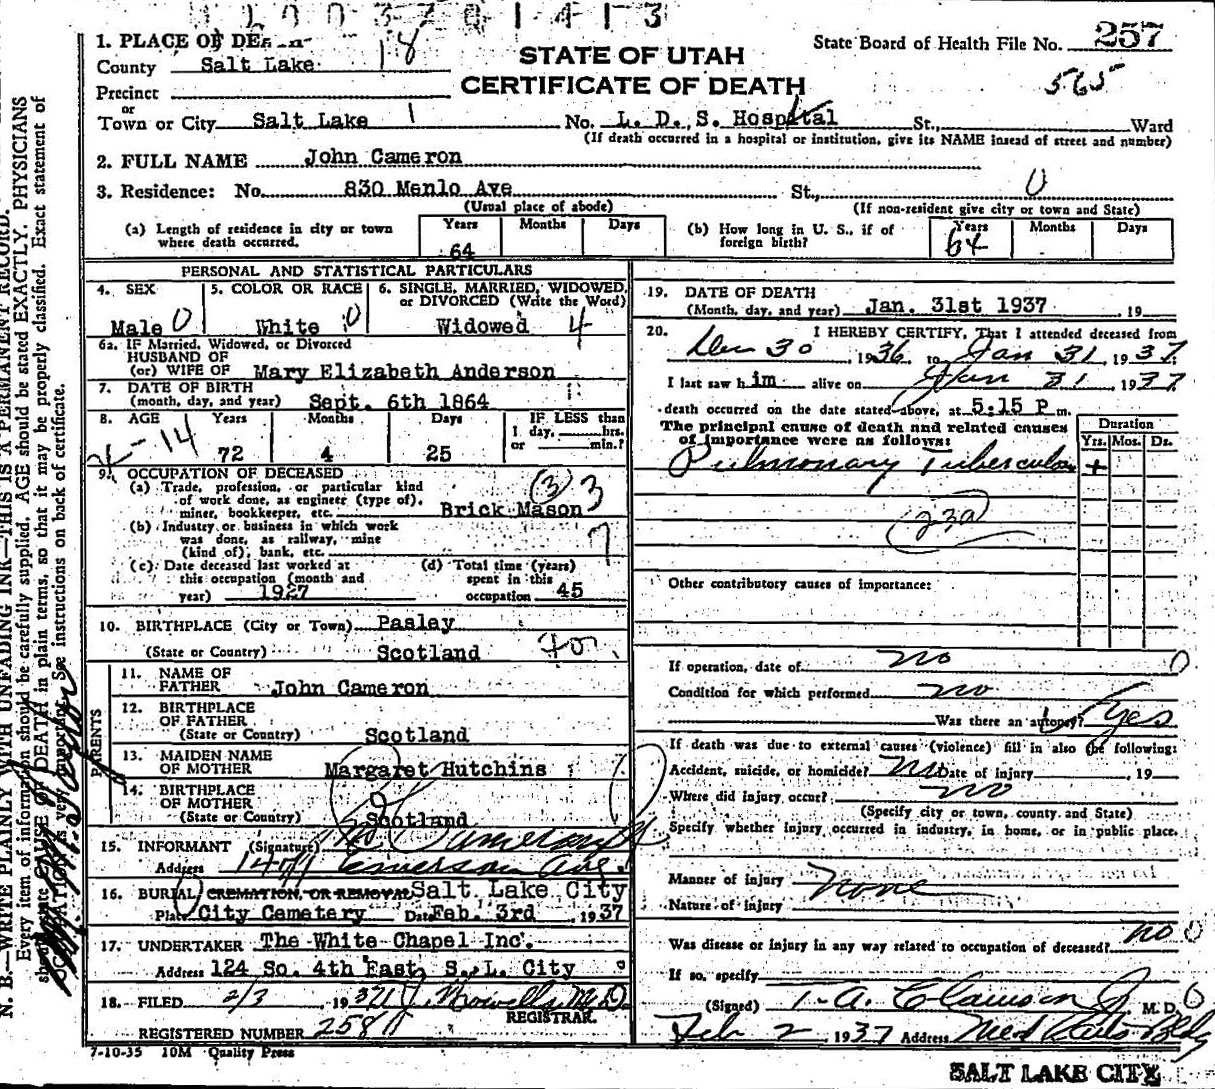 1. PLACE OF DEATH
County Salt Lake 18
STATE OF UTAH
CERTIFICATE OF DEATH
State Board of Health File No. 257
565
Precinct
or
Town or City Salt Lake 1 No. L. D. S. Hospital St., Ward
(If death occurred in a hospital or institution, give its NAME insead of street and number)
2. FULL NAME John Cameron
3. Residence: No. 830 Menlo Ave St., 0
(Usual place of abode) (If non-resident give city or town and State)
(a) Length of residence in city or town where death occurred. Years 64 Months Days
(b) How long in U. S., if of foreign birth? Years 64 Months Days
PERSONAL AND STATISTICAL PARTICULARS
4. SEX Male 0
5. COLOR OR RACE White 0
6. SINGLE, MARRIED, WIDOWED, or DIVORCED (Write the Word) Widowed 4
6a. IF Married, Widowed, or Divorced
HUSBAND OF
(or) WIFE OF Mary Elizabeth Anderson
7. DATE OF BIRTH
(month, day, and year) Sept. 6th 1864
8. AGE Years 72 Months 4 Days 25 IF LESS than 1 day, hrs. or min.?
9. OCCUPATION OF DECEASED
(a) Trade, profession, or particular kind
of work done, as engineer (type of),
miner, bookkeeper, etc. Brick Mason 3 3
(b) Industry or business in which work
was done, as railway, mine
(kind of), bank, etc. 7
(c) Date deceased last worked at
this occupation (month and
year) 1927
(d) Total time (years)
spent in this
occupation 45
10. BIRTHPLACE (City or Town) Pasley
(State or Country) Scotland
PARENTS
11. NAME OF
FATHER John Cameron
12. BIRTHPLACE
OF FATHER
(State or Country) Scotland
13. MAIDEN NAME
OF MOTHER Margaret Hutchins
14. BIRTHPLACE
OF MOTHER
(State or Country) Scotland
15. INFORMANT (Signature)
Address Emerson Ave.
16. BURIAL CREMATION, OR REMOVAL Salt Lake City
Place City Cemetery Date Feb. 3rd, 1937
17. UNDERTAKER The White Chapel Inc.
Address 124 So. 4th East, S. L. City
18. FILED 2/3, 1937
REGISTRAR.
REGISTERED NUMBER 258
7-10-35 10M Quality Press
19. DATE OF DEATH
(Month, day, and year) Jan. 31st 1937, 19
20. I HEREBY CERTIFY, That I attended deceased from
Dec 30, 1936, to Jan 31, 1937.
I last saw him alive on Jan 31, 1937
death occurred on the date stated above, at 5:15 P m.
The principal cause of death and related causes
of importance were as follows:
Duration
Yrs. Mos. Ds.
Pulmonary Tuberculosis +
23a
Other contributory causes of importance:
If operation, date of no 0
Condition for which performed no
Was there an autopsy? Yes
If death was due to external causes (violence) fill in also the following:
Accident, suicide, or homicide? no Date of injury, 19
Where did injury occur? no
(Specify city or town, county and State)
Specify whether injury occurred in industry, in home, or in public place.
Manner of injury none
Nature of injury
Was disease or injury in any way related to occupation of deceased? no 0
If so, specify
(Signed) T. A. Clawson Jr M. D. 0
Feb 2, 1937 Address Med Arts Bldg
SALT LAKE CITY
N. B.—WRITE PLAINLY WITH UNFADING INK—THIS IS A PERMANENT RECORD.
Every item of information should be carefully supplied. AGE should be stated EXACTLY. PHYSICIANS
should state CAUSE OF DEATH in plain terms, so that it may be properly classified. Exact statement of
OCCUPATION is very important. See instructions on back of certificate.